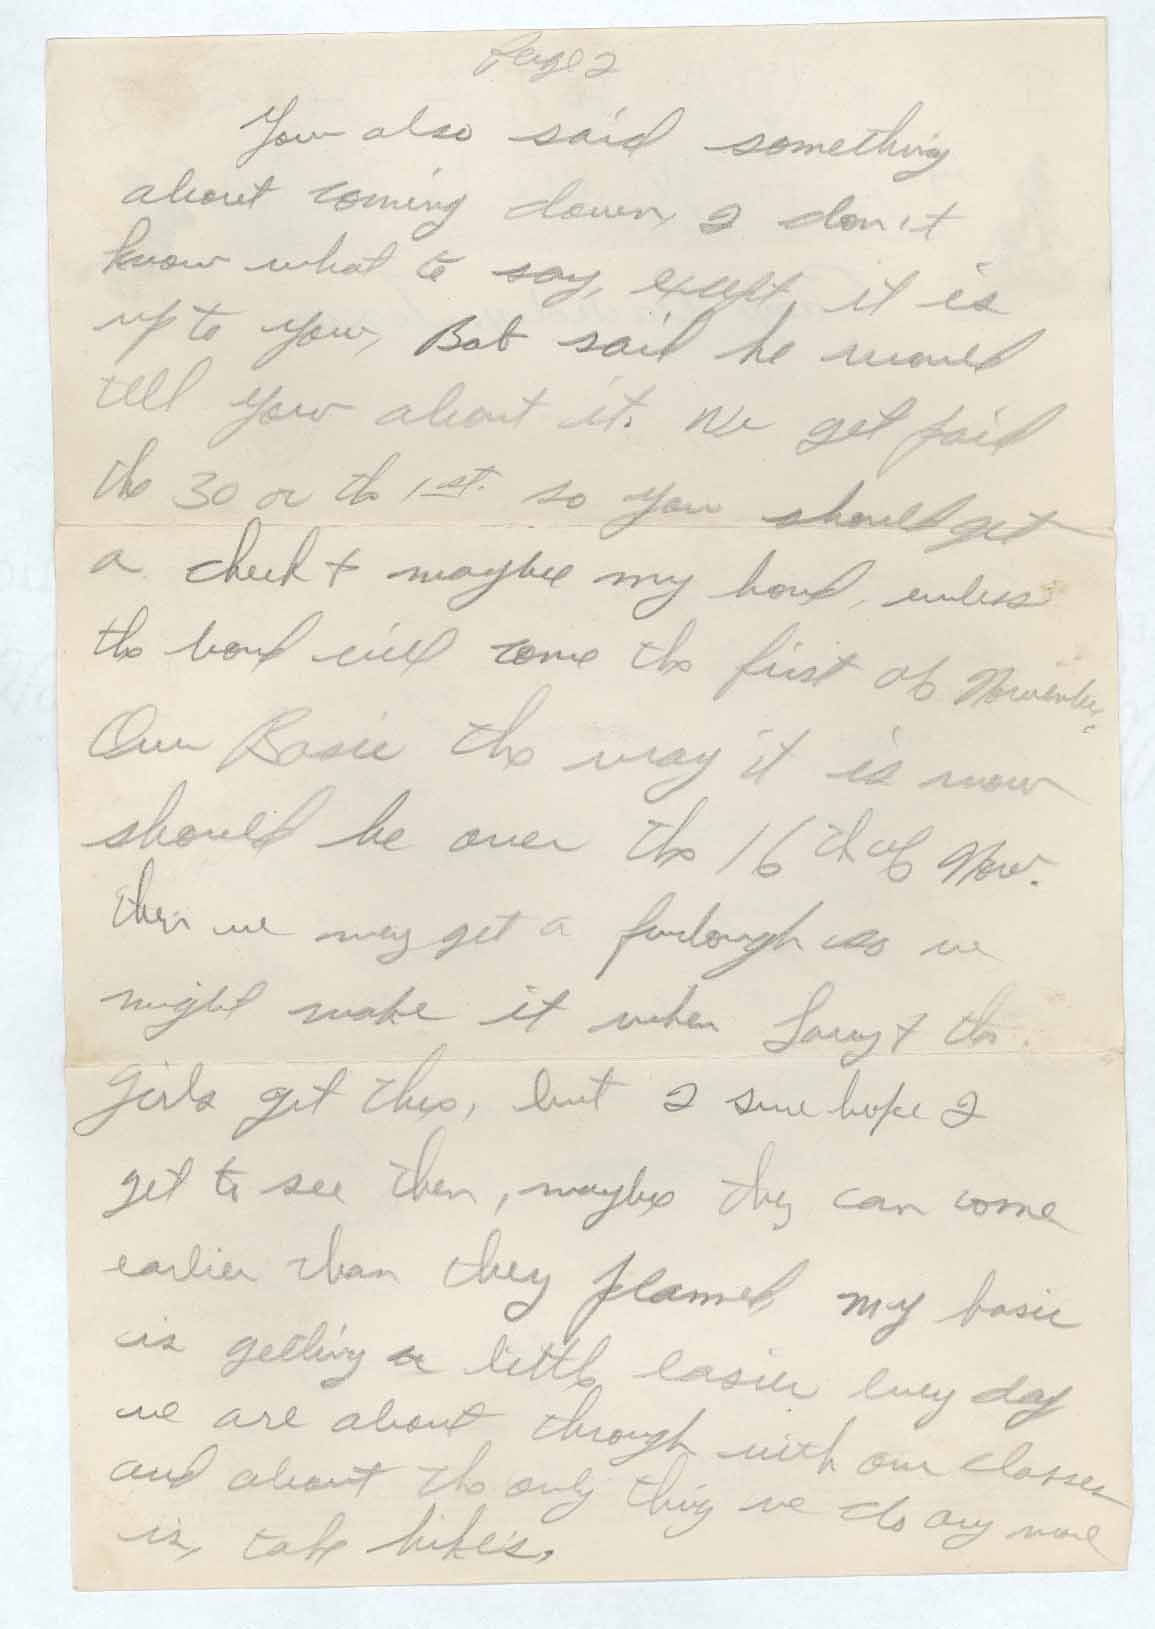 Page 2
You also said something
about coming down, I don't
know what to say, except, it is
up to you, Bob said he would
tell you about it. We get paid
the 30 or the 1st. so you should get
a check + maybe my bond, unless
the bond will come the first of November.
Our Basic the way it is now
should be over the 16th of Nov.
then we may get a furlough so we
might make it when Larry + the
girls get this, but I sure hope I
get to see them, maybe they can come
earlier than they planned, my basic
is getting a little easier every day
we are about through with our classes
and about the only thing we do any more
is, take hike's.